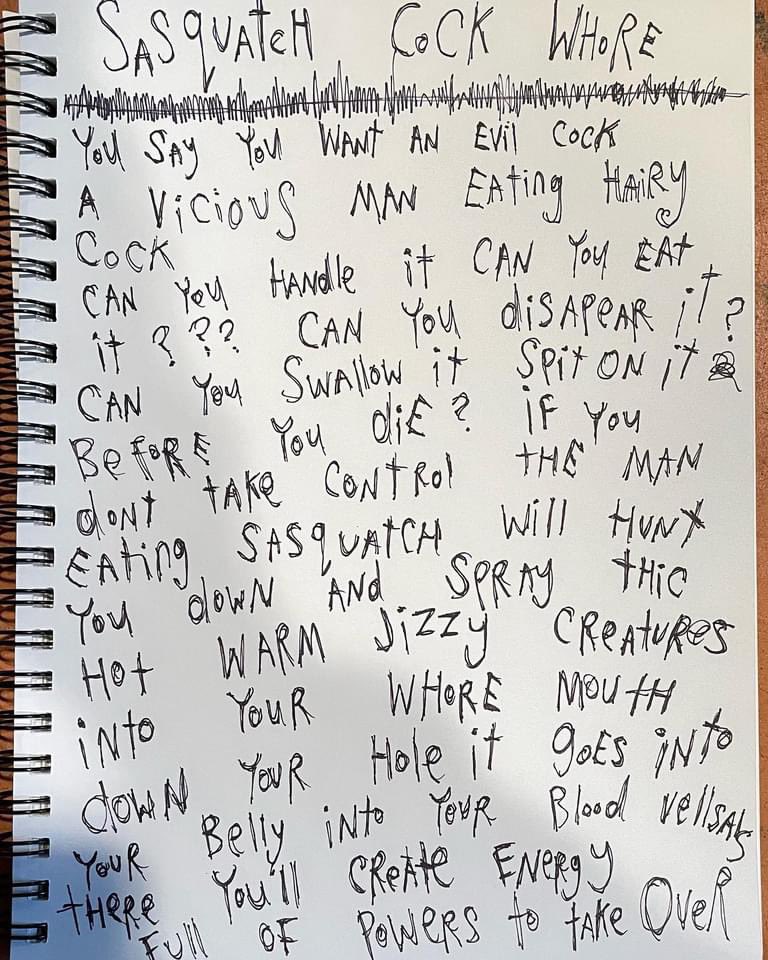 SASquAtcH CoCK WHoRE
You SAY You WANt AN Evil CoCK
A ViCiOUS MAN EAting HAiRy
CoCK
CAN You HANdle it CAN You EAt
it ??? CAN You diSAPEAR it?
CAN You SWAllow it SPit ON it
BeFoRE You diE? iF You
doNt tAKe CoNtRol tHE MAN
EAting SASquAtCH Will HuNt
You doWN ANd SPRAY tHiC
Hot WARM JiZZy CReAtuReS
iNto YouR WHoRE MoutH
doWN YouR Hole it goES iNto
YouR Belly iNto YouR Blood vellSAlS
tHERe You'll CReAte ENERgy
Full OF PoWERS to tAKe OveR